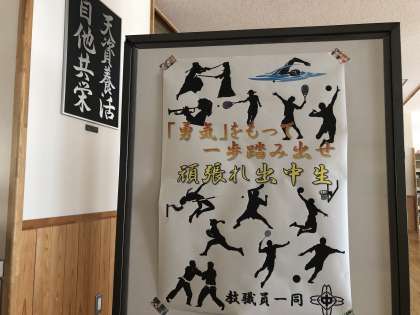 天資養活
自他共栄
「勇気」をもって
一歩踏み出せ
頑張れ出中生
教職員一同
中